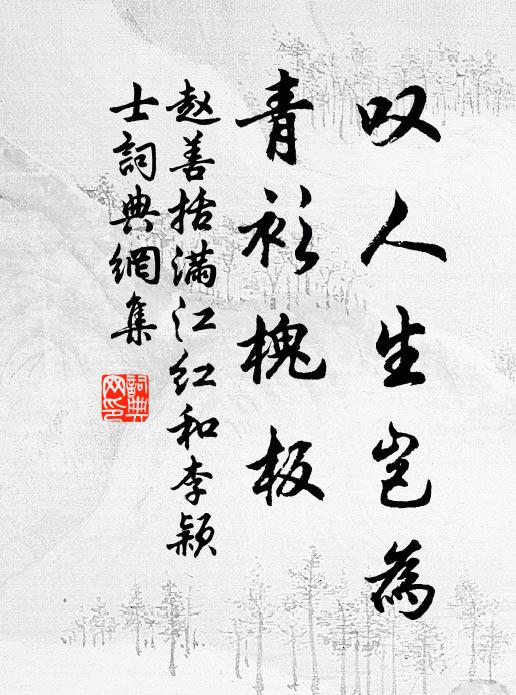 叹人生岂為
青衫槐板
赵善括满江红和李颖
士詞典網集
詞典
网印